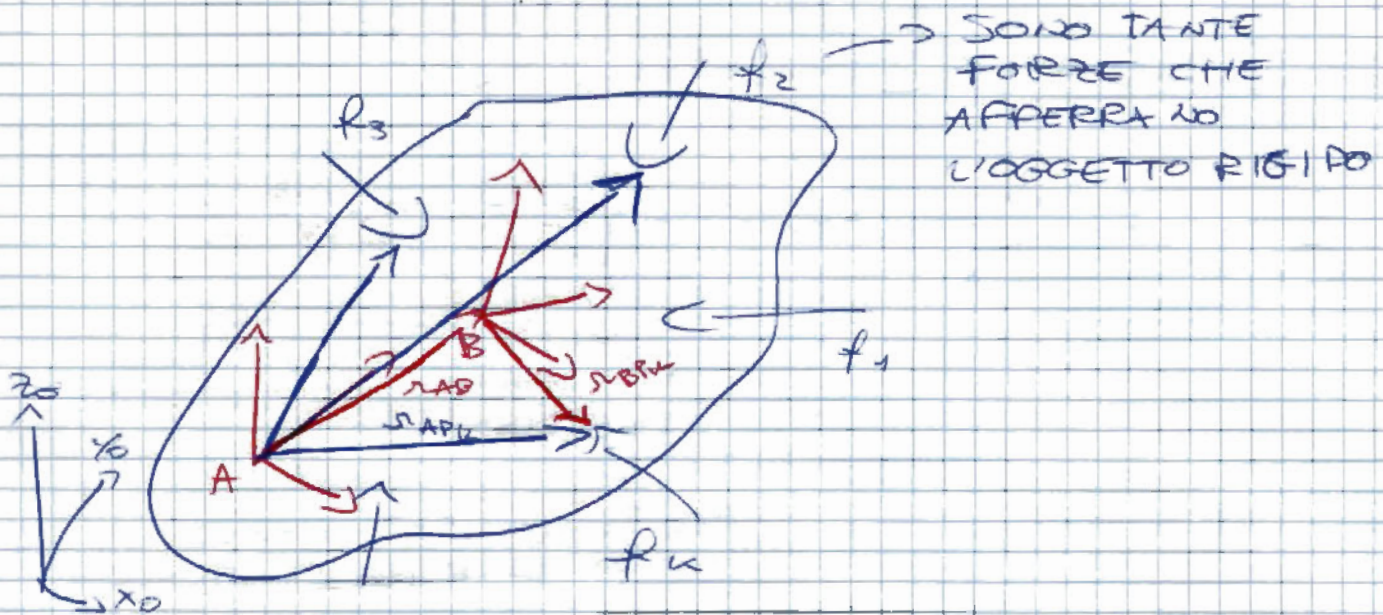 SONO TANTE
FORZE CHE
AFFERRANO
L'OGGETTO RIGIDO
f2
f3
f1
B
rAB
rBPK
rAPK
A
fK
z0
y0
x0